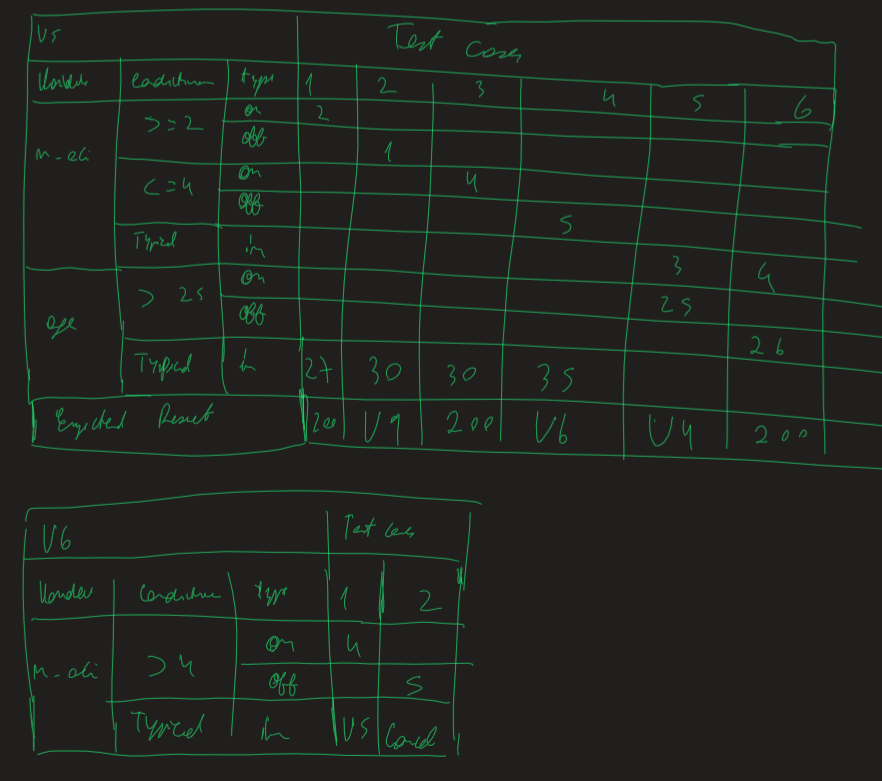 V5 Test Cases
Variable Condition type 1 2 3 4 5 6
>=2 on 2
off 1
<=4 on 4
off 5
Typical in 3 4
age > 25 on 25
off 26
Typical in 27 30 30 35
Expected Result 200 200 V6 V4 200
V6 Test Cases
Condition type 1 2
>4 on 4
off 5
Typical in V5